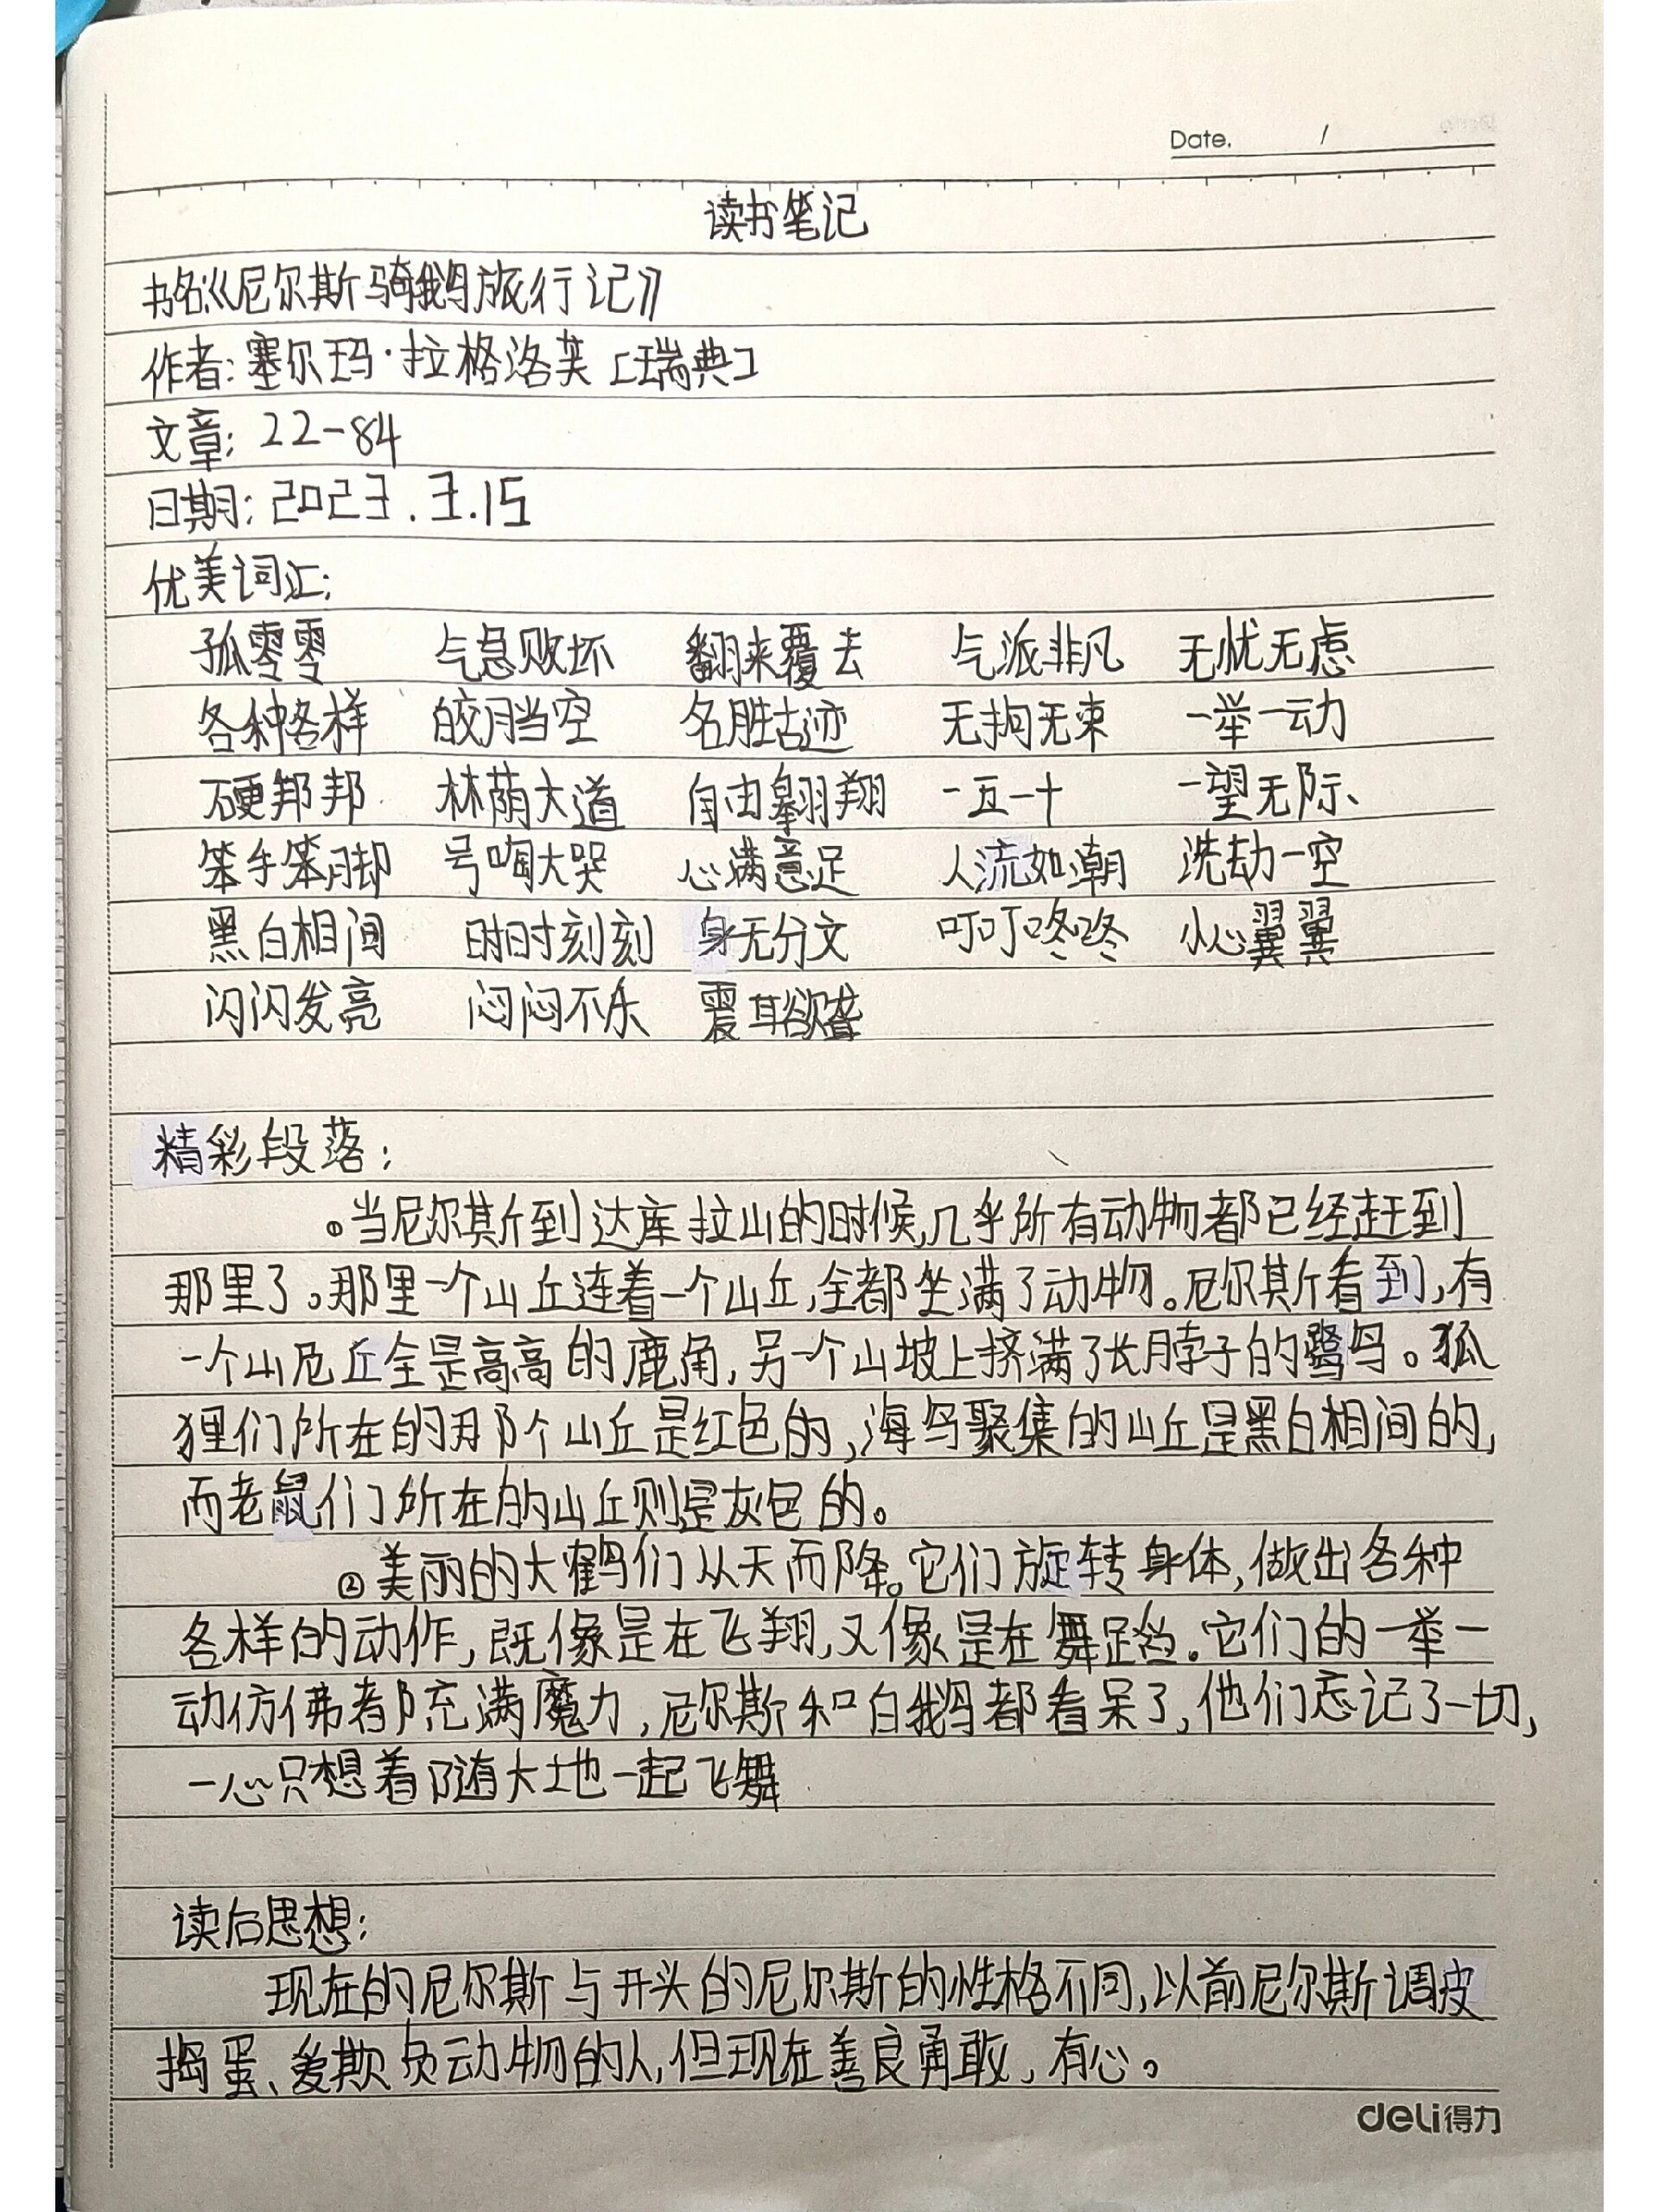 Date. /
读书笔记
书名:《尼尔斯骑鹅旅行记》
作者:塞尔玛·拉格洛芙[瑞典]
文章:22-84
日期:2023.3.15
优美词汇:
孤零零 气急败坏 翻来覆去 气派非凡 无忧无虑
各种各样 皎月当空 名胜古迹 无拘无束 一举一动
硬邦邦 林荫大道 自由翱翔 一五一十 一望无际、
笨手笨脚 号啕大哭 心满意足 人流如潮 洗劫一空
黑白相间 时时刻刻 身无分文 叮叮咚咚 小心翼翼
闪闪发亮 闷闷不乐 震耳欲聋
精彩段落:
①当尼尔斯到达库拉山的时候,几乎所有动物都已经赶到
那里了。那里一个山丘连着一个山丘,全都坐满了动物。尼尔斯看到,有
一个山丘全是高高的鹿角,另一个山坡上挤满了长脖子的鹭鸟。狐
狸们所在的那个山丘是红色的,海鸟聚集的山丘是黑白相间的,
而老鼠们所在的山丘则是灰色的。
②美丽的大鹤鸟们从天而降。它们旋转身体,做出各种
各样的动作,既像是在飞翔,又像是在舞蹈。它们的一举一
动仿佛都充满魔力,尼尔斯和白鹅都看呆了,他们忘记了一切,
一心只想着随大地一起飞舞
读后思想:
现在的尼尔斯与开头的尼尔斯的性格不同,以前尼尔斯调皮
捣蛋、爱欺负动物的人,但现在善良勇敢,有心。
deli得力